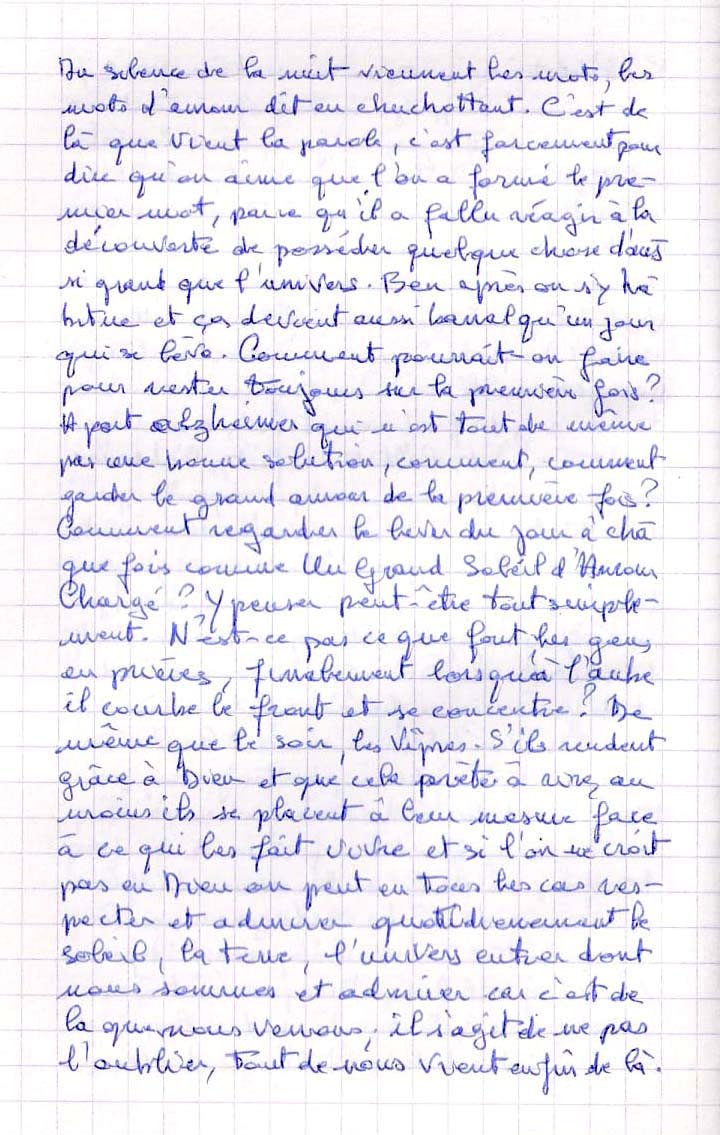 Du silence de la nuit viennent les mots, les
mots d'amour dit en chuchottant. C'est de
là que vient la parole, c'est forcement pour
dire qu'on aime que l'on a formé le pre-
mier mot, parce qu'il a fallu réagir à la
découverte de posséder quelque chose d'aus
si grand que l'univers. Ben après on s'y ha
bitue et ça devient aussi banal qu'un jour
qui se lève. Comment pourrait-on faire
pour rester toujours sur la première fois?
A part alzheimer qui n'est tout de même
pas une bonne solution, comment, comment
garder le grand amour de la première fois?
Comment regarder le lever du jour à cha
que fois comme Un Grand Soleil d'Amour
Chargé? Y penser peut-être tout simple-
ment. N'est-ce pas ce que font les gens
en prières, finalement lorsqu'à l'aube
il courbe le front et se concentre? De
même que le soir, les Vêpres. S'ils rendent
grâce à Dieu et que cela prête à rire, au
moins ils se placent à leur mesure face
à ce qui les fait vivre et si l'on ne croit
pas en Dieu on peut en tous les cas res-
pecter et admirer quotidiennement le
soleil, la terre, l'univers entier dont
nous sommes et admirer car c'est de
la que nous venons, il s'agit de ne pas
l'oublier, tout de nous vient enfin de là.